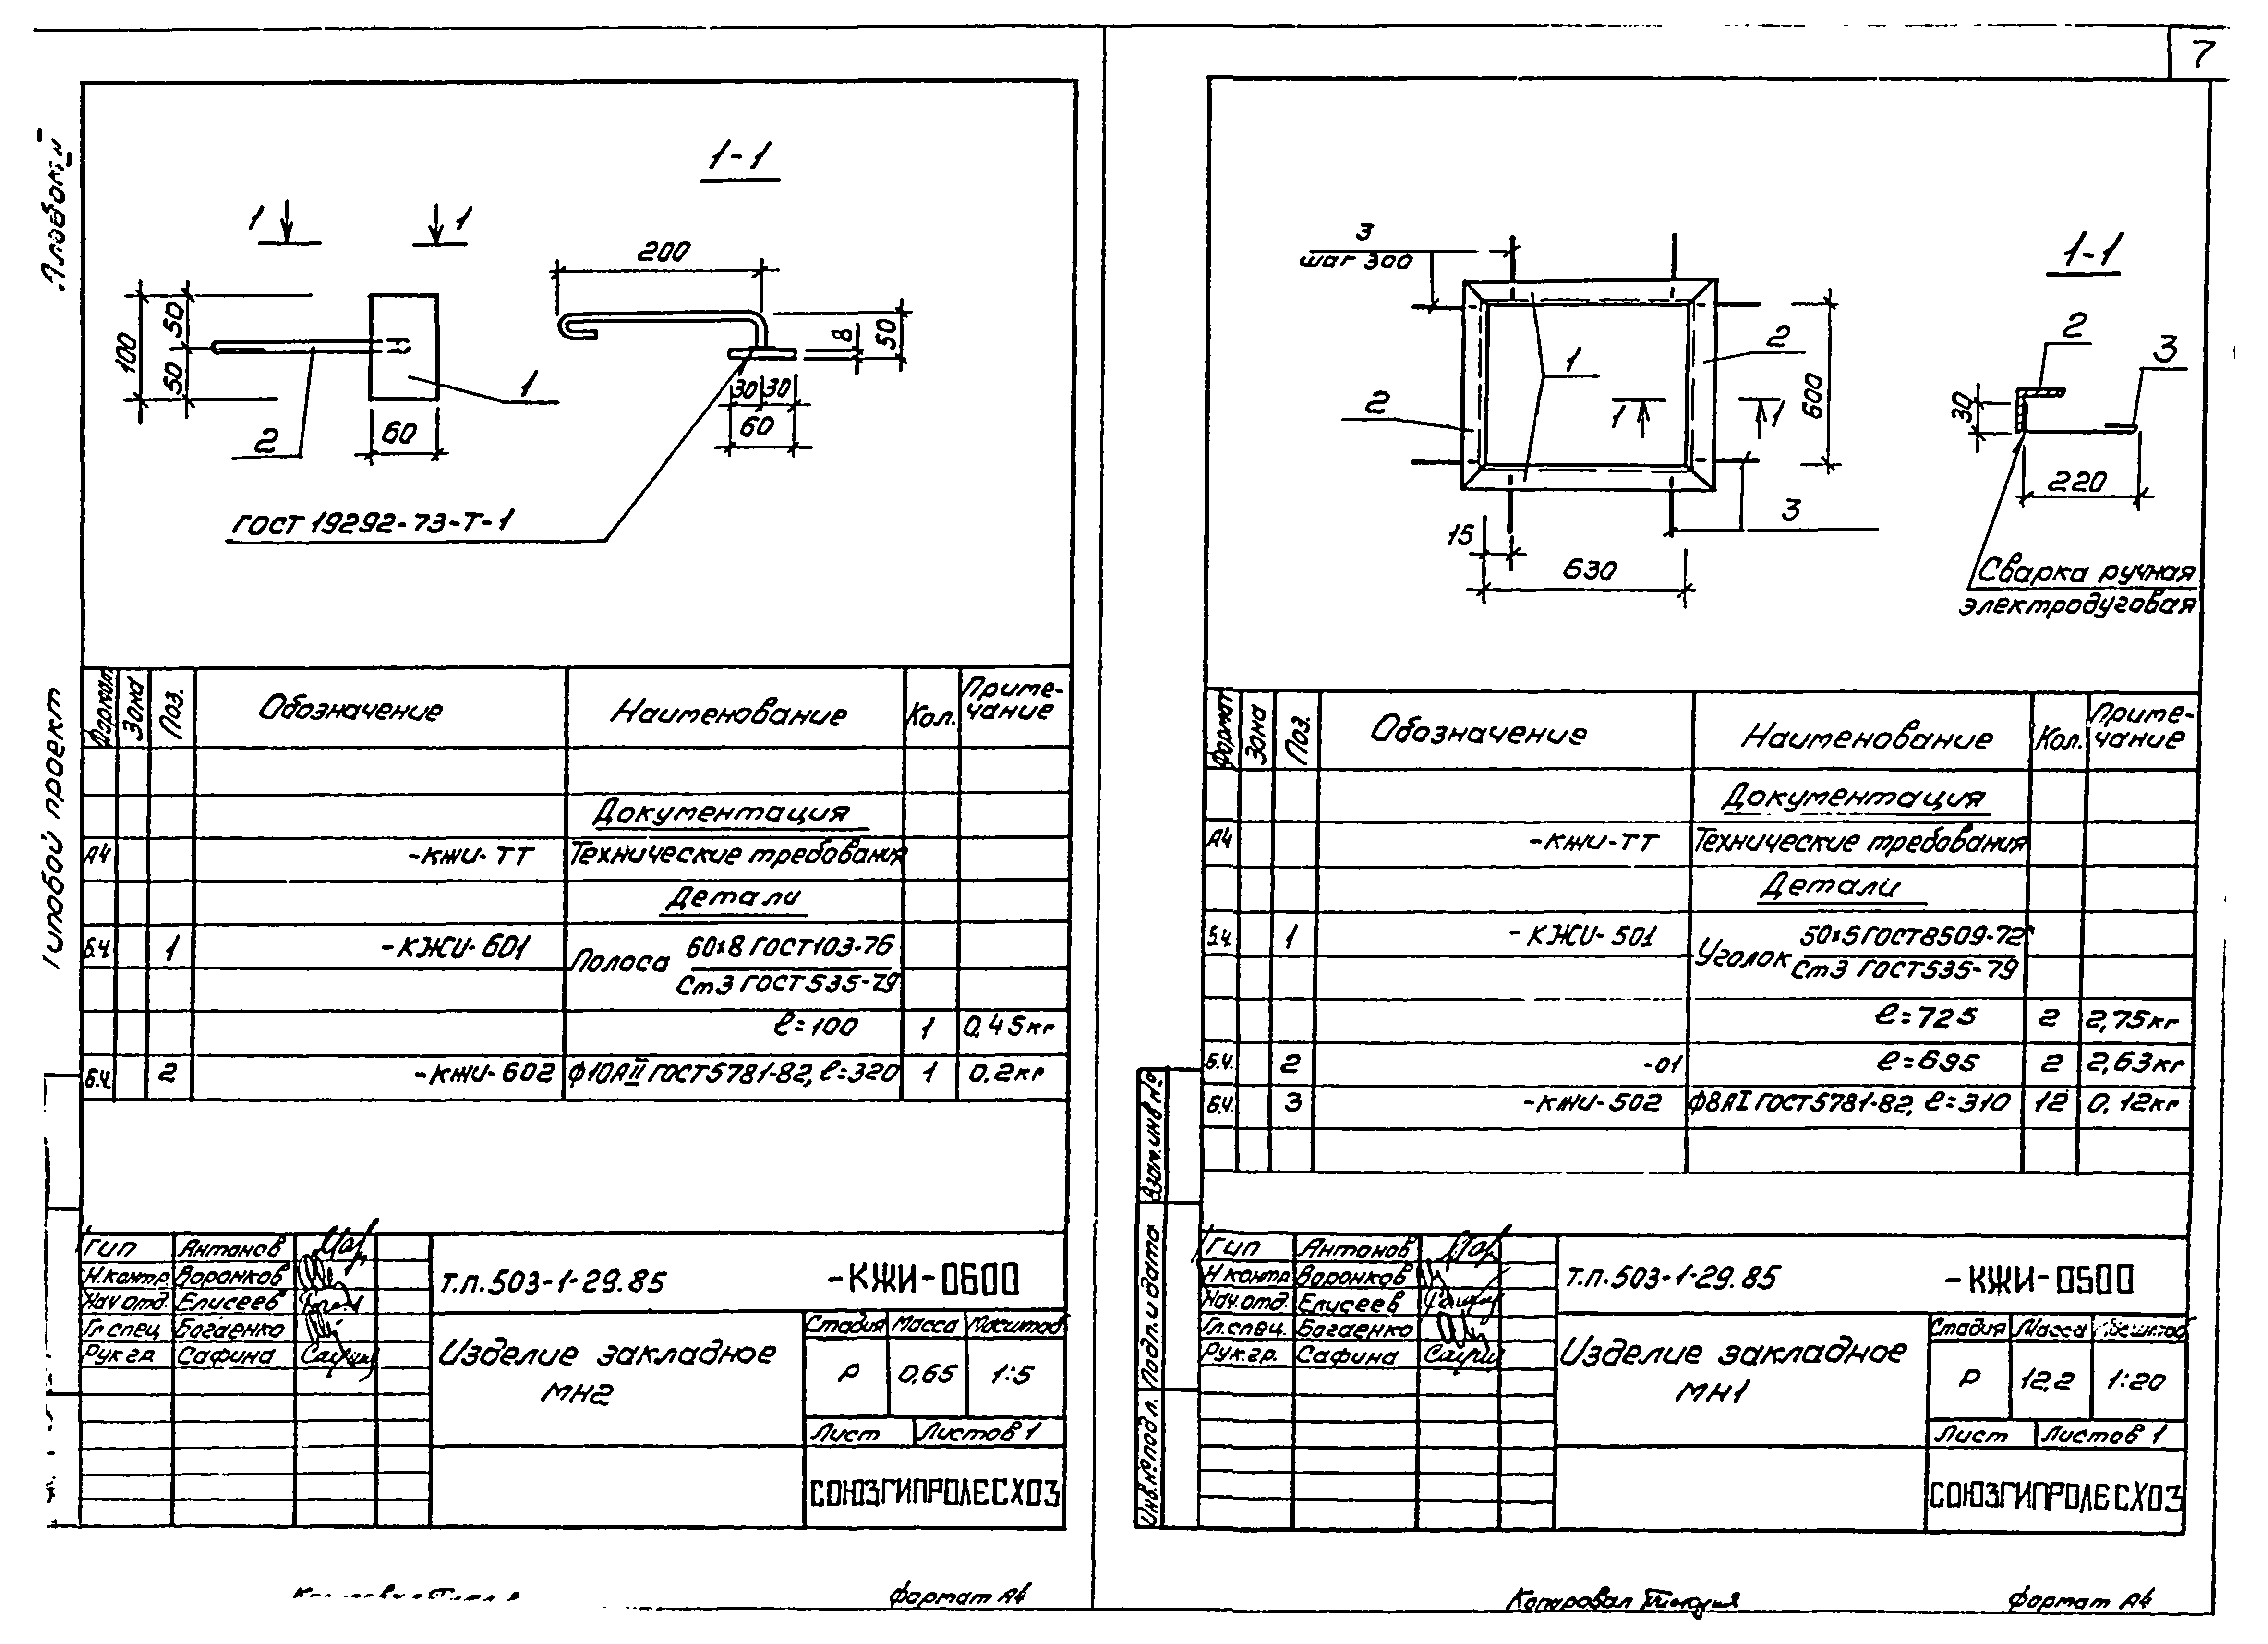 7
Альбом II
Типовой проект
1-1
1
1
200
100
50
50
8
50
1
2
60
30 30
60
ГОСТ 19292-73-Т-1
Формат Зона Поз. Обозначение Наименование Кол. Приме-
чание
Документация
А4 -КЖИ-ТТ Технические требования
Детали
Б.Ч. 1 -КЖИ-601 Полоса 60х8 ГОСТ 103-76
Ст3 ГОСТ 535-79
ℓ=100 1 0,45кг
Б.Ч. 2 -КЖИ-602 ф10АII ГОСТ 5781-82, ℓ=320 1 0,2кг
ГИП Антонов
Н.контр. Воронков
Нач.отд. Елисеев
Гл.спец Богаенко
Рук.гр Сафина
т.п.503-1-29.85 -КЖИ-0600
Изделие закладное
МН2
Стадия Масса Масштаб
Р 0,65 1:5
Лист Листов 1
СОЮЗГИПРОЛЕСХОЗ
формат А4
3
шаг 300
1-1
2
1
2
1
1
600
3
15
630
2
3
30
220
Сварка ручная
электродуговая
Формат Зона Поз. Обозначение Наименование Кол. Приме-
чание
Документация
А4 -КЖИ-ТТ Технические требования
Детали
Б.Ч. 1 -КЖИ-501 Уголок 50х5 ГОСТ 8509-72
Ст3 ГОСТ 535-79
ℓ=725 2 2,75кг
Б.Ч. 2 -01 ℓ=695 2 2,63кг
Б.Ч. 3 -КЖИ-502 ф8АI ГОСТ 5781-82, ℓ=310 12 0,12кг
Взам.инв №
Подп.и дата
Инв.№подл.
ГИП Антонов
Н.контр Воронков
Нач.отд. Елисеев
Гл.спец. Богаенко
Рук.гр. Сафина
т.п.503-1-29.85 -КЖИ-0500
Изделие закладное
МН1
Стадия Масса Масштаб
Р 12,2 1:20
Лист Листов 1
СОЮЗГИПРОЛЕСХОЗ
Копировал
формат А4